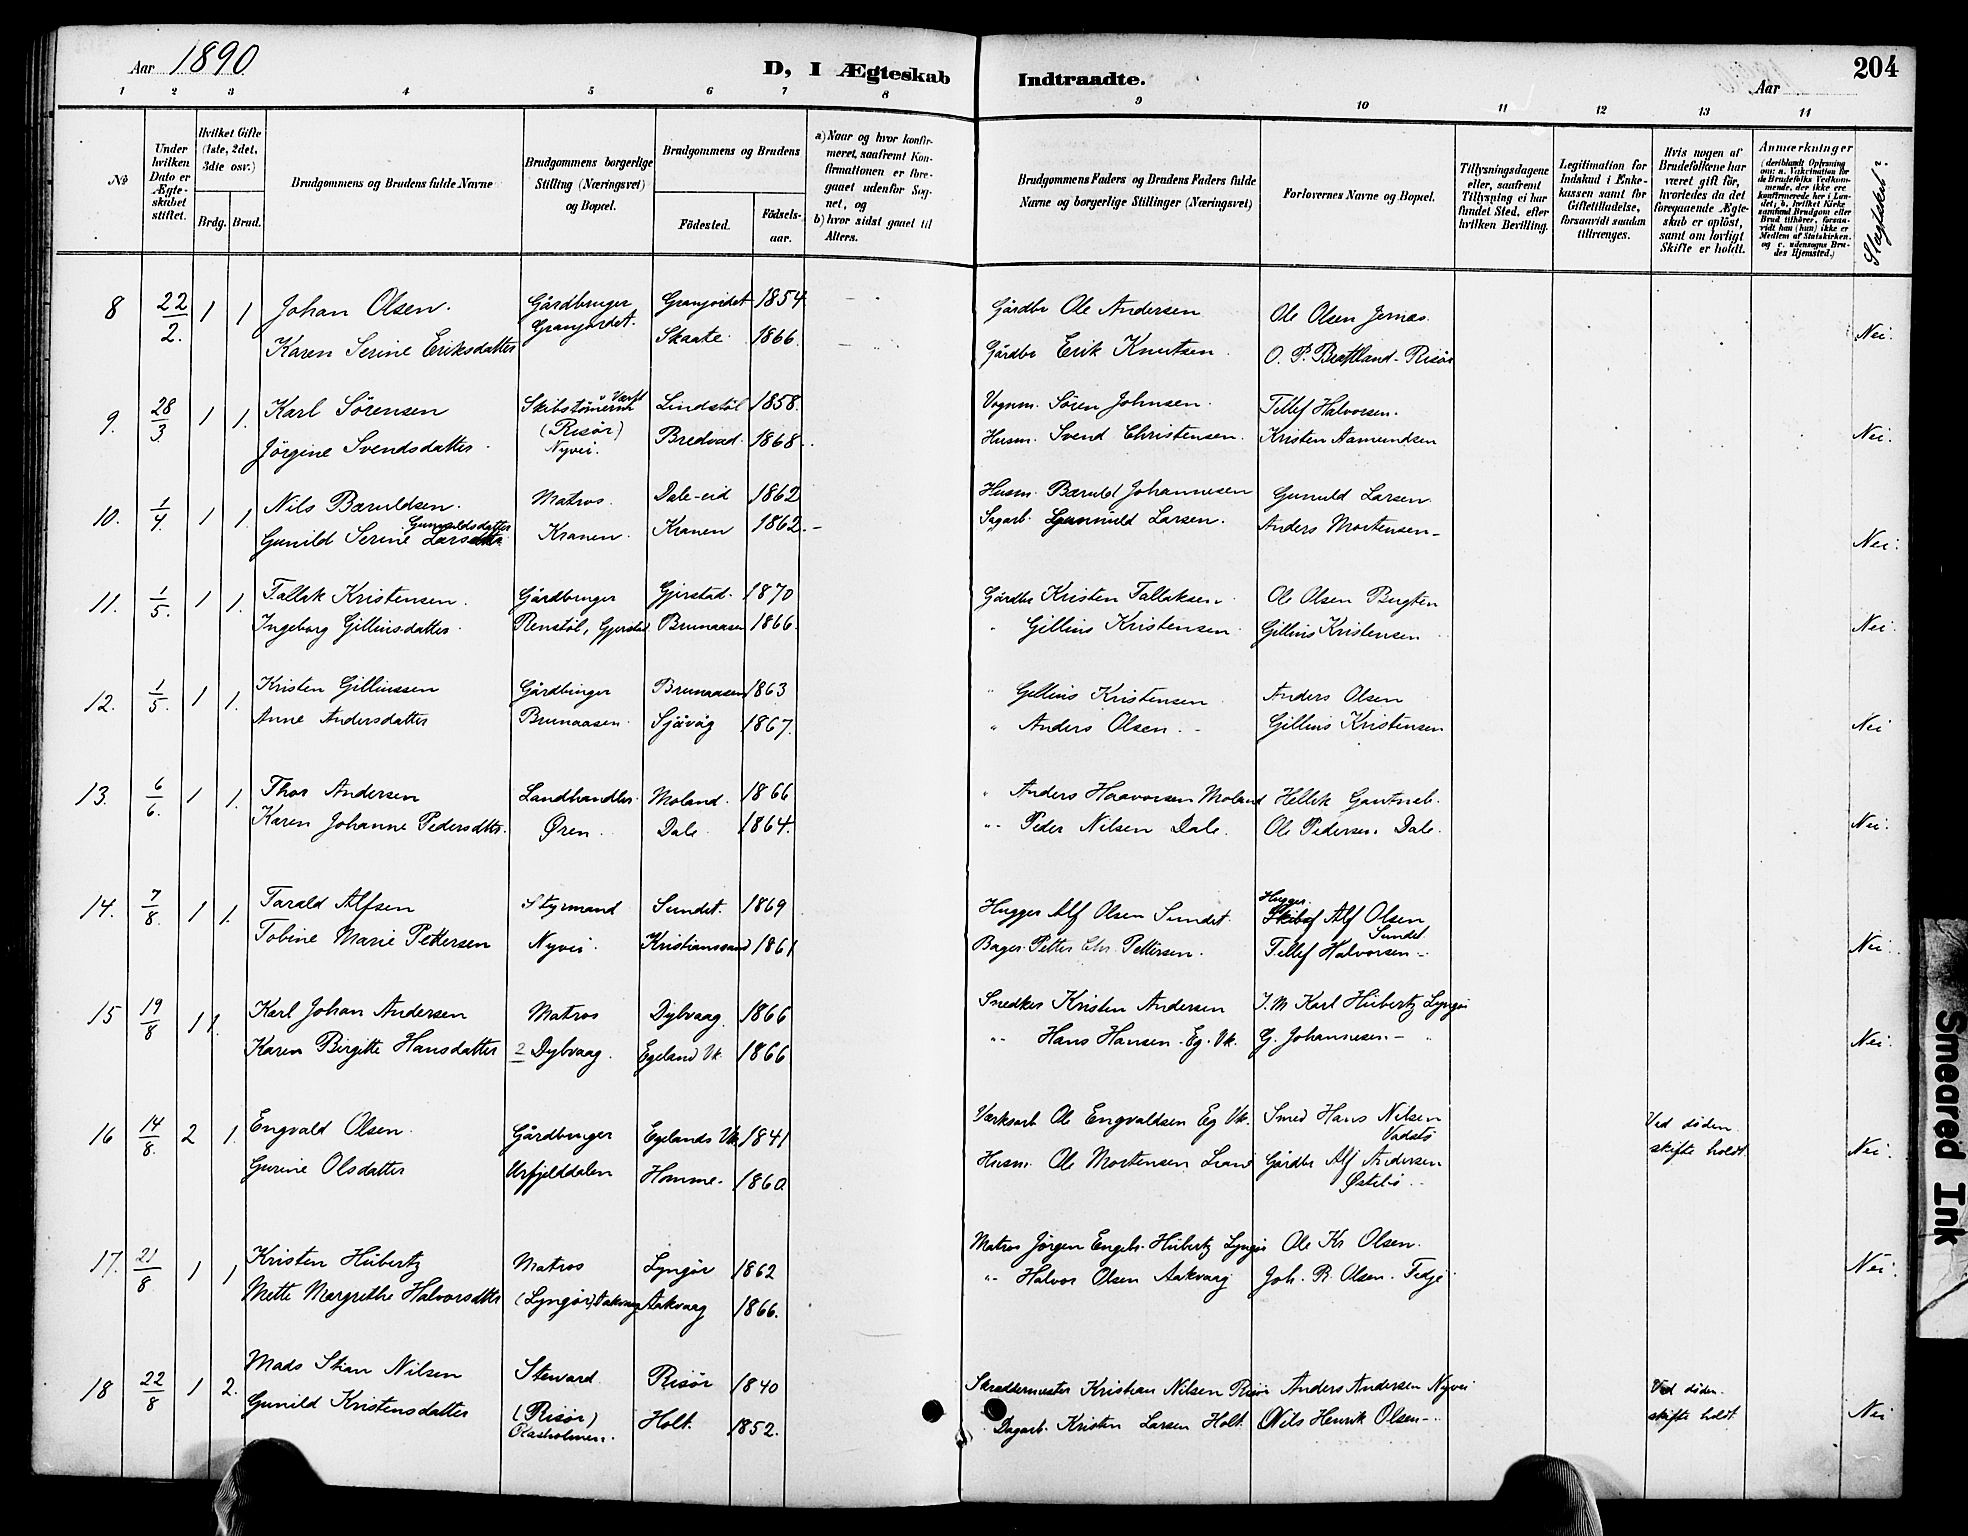 Aar 1890
D, I Ægteskab Indtraadte.
Aar
204
1 2 3 4 5 6 7 8 9 10 11 12 13 14
No
Under hvilken Dato er Ægteskabet stiftet.
Hvilket Gifte (1ste, 2det, 3die osv.)
Brdg. Brud.
Brudgommens og Brudens fulde Navne
Brudgommens borgerlige Stilling (Næringsvei) og Bopæl.
Brudgommens og Brudens
Födested. Födselsaar.
a) Naar og hvor konfirmeret, saafremt Konfirmationen er foregaaet udenfor Sognet, og
b) hvor sidst gaaet til Alters.
Brudgommens Faders og Brudens Faders fulde Navne og borgerlige Stillinger (Næringsvei)
Forlovernes Navne og Bopæl.
Tillysningsdagene eller, saafremt Tillysning ei har fundet Sted, efter hvilken Bevilling.
Legitimation for Indskud i Enkekassen samt for Giftetilladelse, forsaavidt saadan tiltrænges.
Hvis nogen af Brudefolkene har været gift før, hvorledes da det foregaaende Ægteskab er oplöst, samt om lovligt Skifte er holdt.
Anmærkninger (deriblandt Oplysning om: a. Vakcination for de Brudefolks Vedkommende, der ikke ere konfirmerede her i Landet, b. hvilket Kirke samfund Brudgom eller Brud tilhörer, forsaavidt han (hun) ikke er Medlem af Statskirken, og c. udensogns Brudes Hjemsted.)
Slægtskab?
8 22/2. 1 1 Johan Olsen. Gårdbruger Granjordet 1854 Gårdbr Ole Andersen Ole Olsen Jernæs.
Karen Serine Eriksdatter Granjordet. Skaate 1866. Gårdbr Erik Knutsen. O. P. Bratland - Risör Nei.
9. 28/3 1 1. Karl Sörensen Skibstömerm v. Værft Lindstöl 1858. Vognm. Sören Johnsen. Tellef Halvorsen.
Jörgine Svendsdatter. (Risör) Nyvei. Bredvad. 1868. Husm. Svend Christensen. Kristen Aamundsen Nei.
10. 1/4 1 1 Nils Baruldsen. Matros. Dale-eid 1862 Husm. Baruld Johannesen Gunuld Larsen.
Gunild Serine Larsdatter Gunuldsdatter Kranen. Kranen 1862. Sagarb. Gunnuld Larsen. Anders Mortensen Nei.
11. 1/5. 1 1. Tallak Kristensen. Gårdbruger Gjerstad. 1870 Gårdbr Kristen Tallaksen. Ole Olsen Bugten
Ingeborg Gilliusdatter. Renstöl, Gjerstad Brunaasen 1866. " Gillius Kristensen. Gillius Kristensen Nei.
12. 1/5. 1 1. Kristen Gilliussen Gårdbruger Brunaasen 1863 " Gillius Kristensen Anders Olsen
Anne Andersdatter Brunaasen. Sjåvåg 1867. " Anders Olsen. Gillius Kristensen Nei
13. 6/6. 1 1. Thor Andersen Landhandler. Moland. 1866 " Anders Haavorsen Moland Hellik
Karen Johanne Pedersdtter. Øren. Dale. 1864. " Peder Nilsen Dale. Ole Pedersen Dale. Nei.
14. 7/8. 1 1. Tarald Alfsen Styrmand Sundet. 1869 Hugger Alf Olsen Sundet. Hugger. Alf Olsen Sundet
Tobine Marie Pettersen Nyvei. Kristianssand 1861 Bager. Petter Chr. Pettersen. Tellef Halvorsen Nei.
15 19/8 1 1. Karl Johan Andersen Matros Dybvaag. 1866 Snedker Kristen Andersen J. M. Karl Hübertz Lyngör
Karen Birgitte Hansdatter ? Dybvaag. Egeland Vk. 1866 " Hans Hansen - Eg. Vk. G. Johannesen - " Nei.
16 14/8. 2 1. Engvald Olsen. Gårdbruger Egelands Vk. 1841 Værksarb Ole Engvaldsen Eg Vk. Smed Hans Nilsen Vadstö Ved döden.
Gurine Olsdatter Urfjelddalen Homme. 1860 Husm. Ole Mortensen Liane Gårdbr Alf Andersen Östebö. skifte holdt. Nei.
17. 21/8 1 1 Kristen Hübertz Matros Lyngör 1862 Matros Jörgen Engebr. Hübertz Lyngör Ole Kr Olsen.
Mette Margrethe Halvorsdtter (Lyngör) Aakvaag Aakvaag 1866. " Halvor Olsen Aakvaag Joh. R. Olsen. Fidje Nei.
18 22/8 1 2. Mads Stian Nilsen Steward. Risör 1840 Skraddermester Kristian Nilsen Risör Anders Andersen Nyvei Ved döden.
Gunild Kristensdatter (Risör) Olasholmen. Holt. 1852. Dagarb. Kristen Larsen Holt. Nils Henrik Olsen skifte holdt. Nei
Smeared Ink